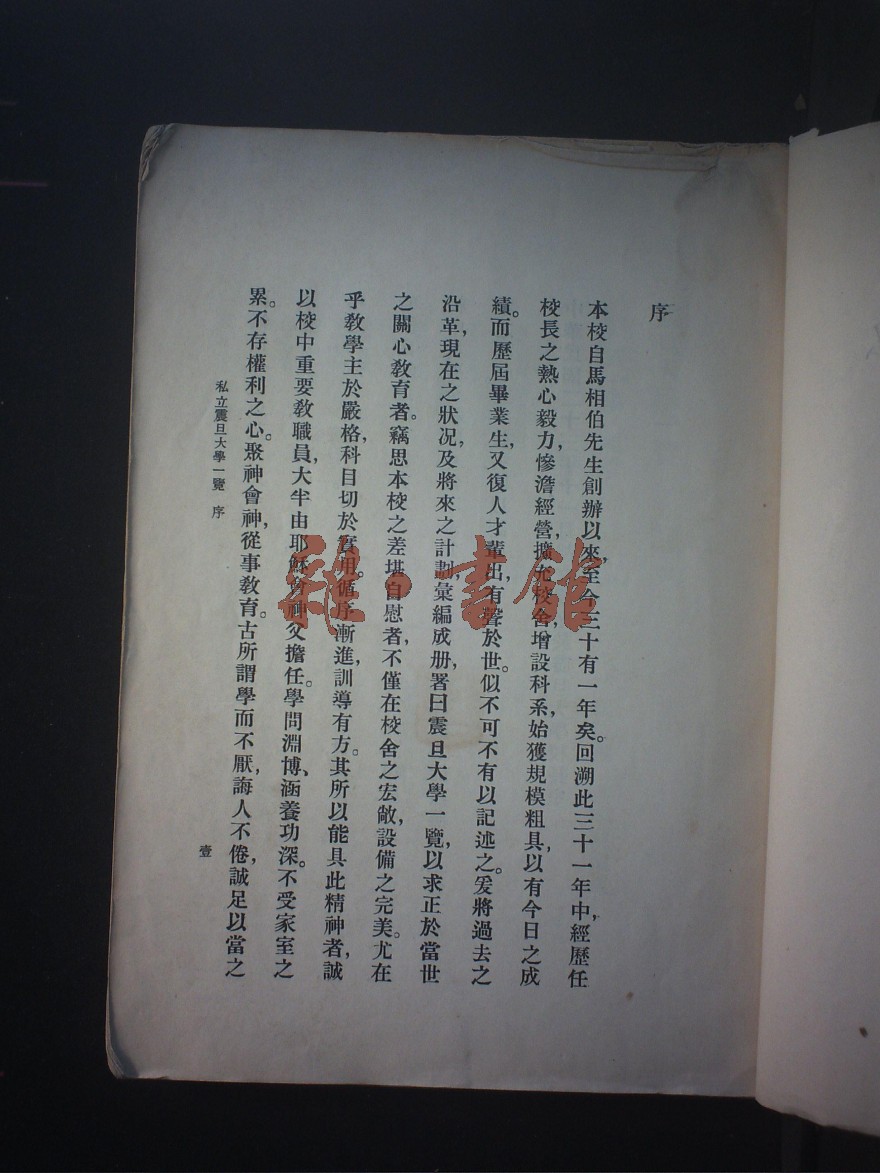 序
本校自馬相伯先生創辦以來，至今三十有一年矣。回溯此三十一年中，經歷任
校長之熱心毅力，慘澹經營，擴充校舍，增設科系，始獲規模粗具，以有今日之成
績。而歷屆畢業生，又復人才輩出，有聲於世。似不可不有以記述之。爰將過去之
沿革，現在之狀况，及將來之計劃，彙編成册，署曰震旦大學一覽，以求正於當世
之關心敎育者。竊思本校之差堪自慰者，不僅在校舍之宏敞，設備之完美。尤在
乎敎學主於嚴格，科目切於實用。循序漸進，訓導有方。其所以能具此精神者，誠
以校中重要敎職員，大半由耶穌會神父擔任。學問淵博、涵養功深。不受家室之
累。不存權利之心。聚神會神，從事敎育。古所謂學而不厭，誨人不倦，誠足以當之
私立震旦大學一覽 序
壹
雜·書館